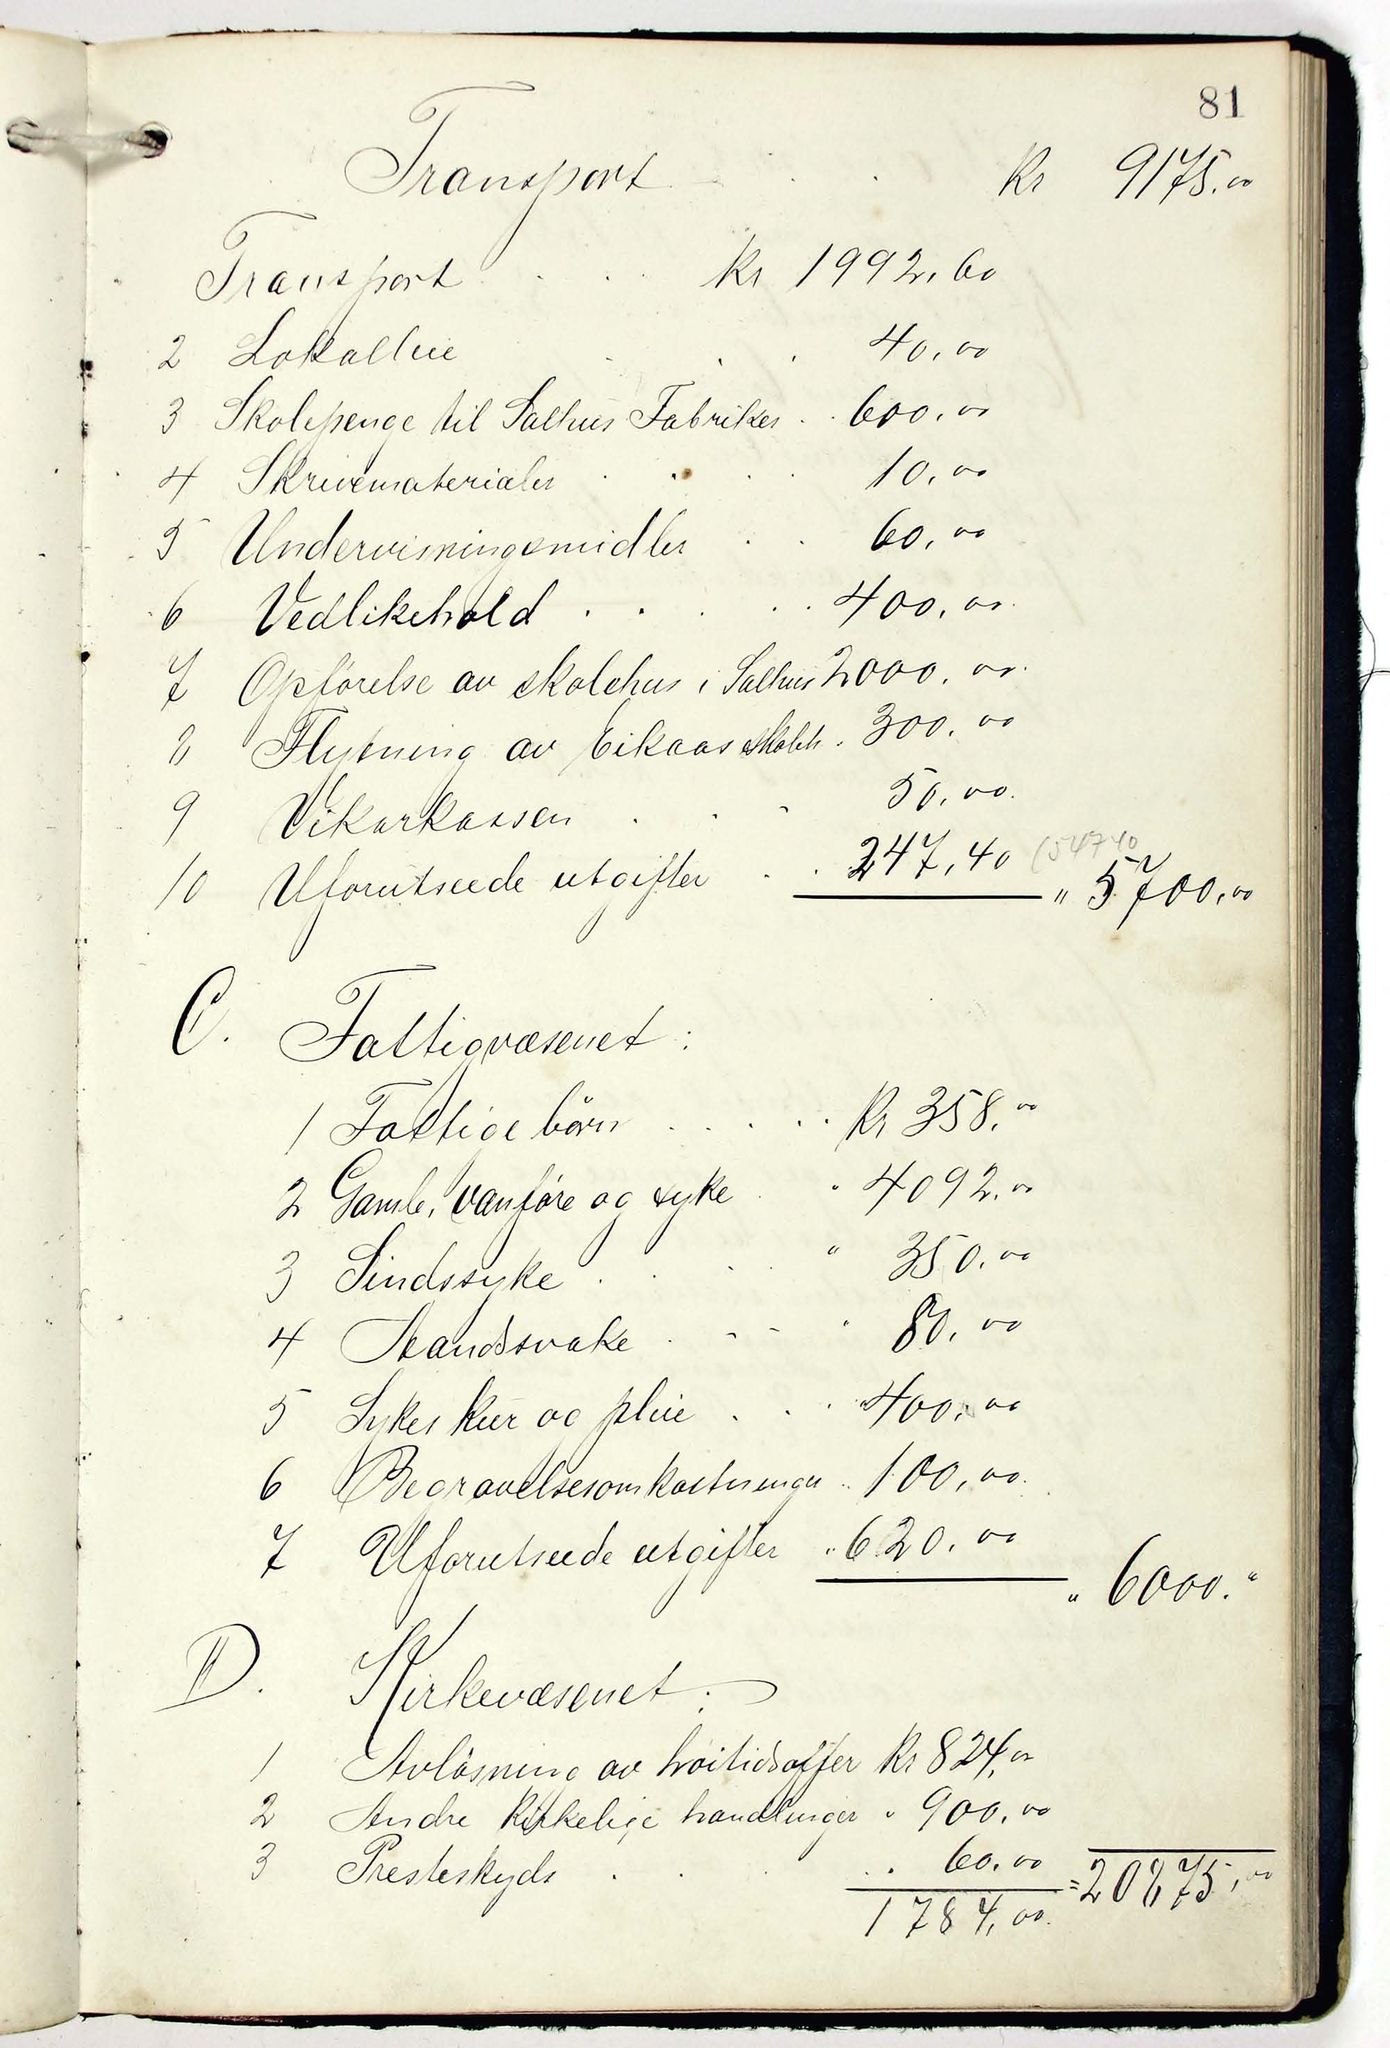 81
Transport . . kr 9175.00
Transport . . . kr 1992,60
2 Lokalleie . . . 40,00
3 Skolepenge til Salhus Fabriker . . 600,00
4 Skrivematerialer . . . . 10,00
5 Undervisningsmidler . . 60,00
6 Vedlikehold . . . . . 400,00
7 Opförelse av skolehus i Salhus 2000,00
8 Flytning av Eikaas skoleh. 300,00
9 Vikarkassen . . . 50,00
10 Uforutseede utgifter . . 247,40 (547 40
" 5700,00
C. Fattigvæsenet :
1 Fattige börn . . . . . kr 358.00
2 Gamle, vanföre og syke . " 4092.00
3 Sindssyke . . . " 350.00
4 Aandssvake . - - " 80,00
5 Sykes kur og pleie . . . " 400,00
6 Begravelsesomkostninger .. 100,00
7 Uforutseede utgifter " 620,00
" 6000."
D. Kirkevæsenet :
1 Avlösning av höitidsoffer kr 824,00
2 Andre kirkelige handlinger " 900,00
3 Presteskyds . . . . 60,00
1784,00 = 20875,00